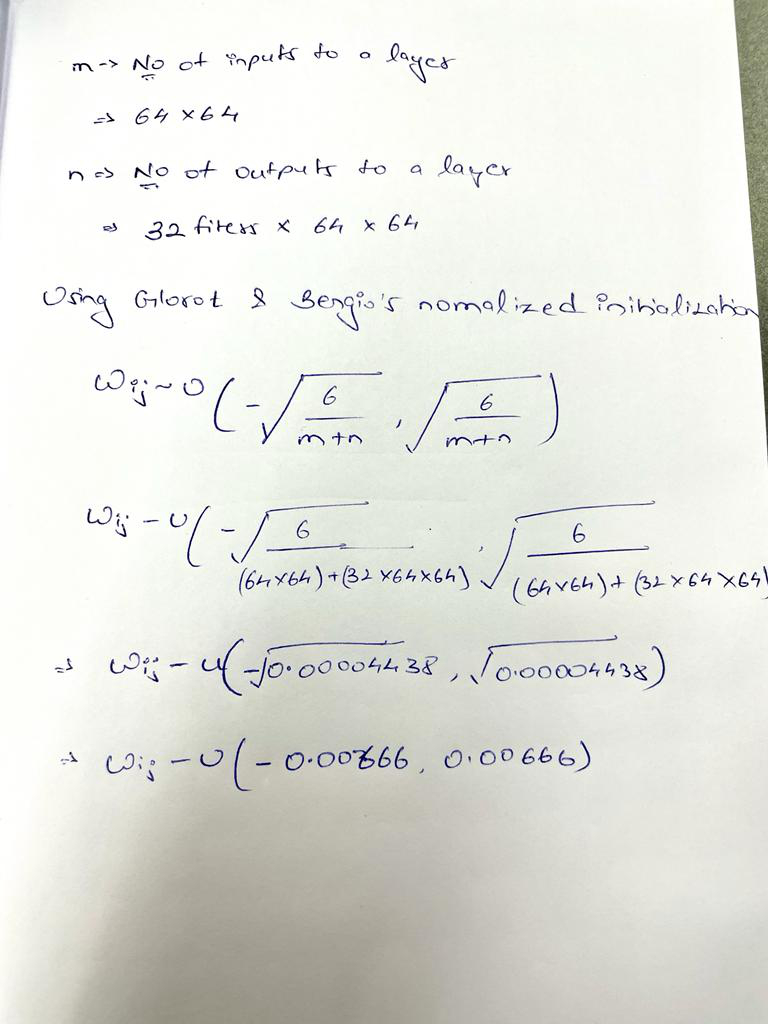 m -> No of inputs to a layer
=> 64 × 64
n => No of outputs to a layer
=> 32 filters × 64 × 64
Using Glorot & Bengio's nomalized initialization
Wij ~ U (-√(6/(m+n)), √(6/(m+n)))
Wij - U (-√(6/((64×64)+(32×64×64))), √(6/((64×64)+(32×64×64))))
=> Wij - U (-√0.00004438, √0.00004438)
=> Wij - U (-0.00666, 0.00666)